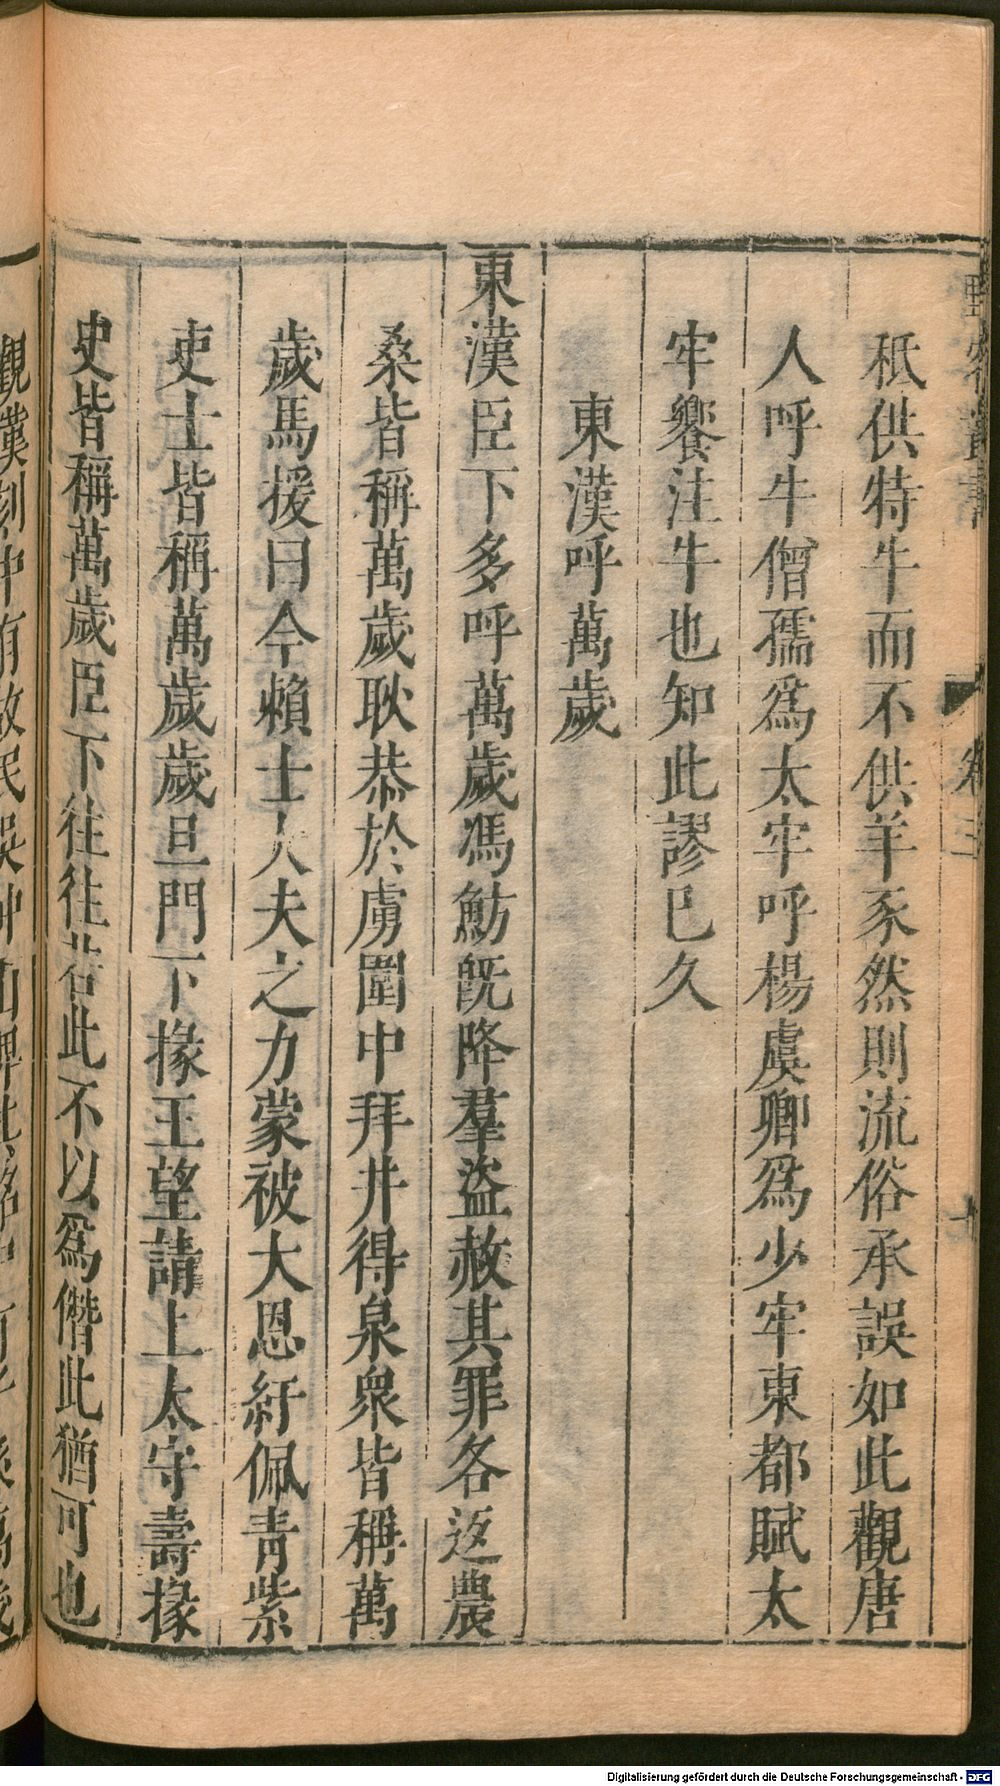 野客叢書
卷三
秪供特牛而不供羊豕然則流俗承誤如此觀唐
人呼牛僧孺爲太牢呼楊虞卿爲少牢東都賦太
牢饗注牛也知此謬已久
東漢呼萬歲
東漢臣下多呼萬歲馮魴旣降羣盜赦其罪各返農
桑皆稱萬歲耿恭於虜圍中拜井得泉衆皆稱萬
歲馬援曰今賴士大夫之力蒙被大恩紆佩青紫
吏士皆稱萬歲歲旦門下掾王望請上太守壽掾
史皆稱萬歲臣下往往若此不以爲僭此猶可也
Digitalisierung gefördert durch die Deutsche Forschungsgemeinschaft - DFG